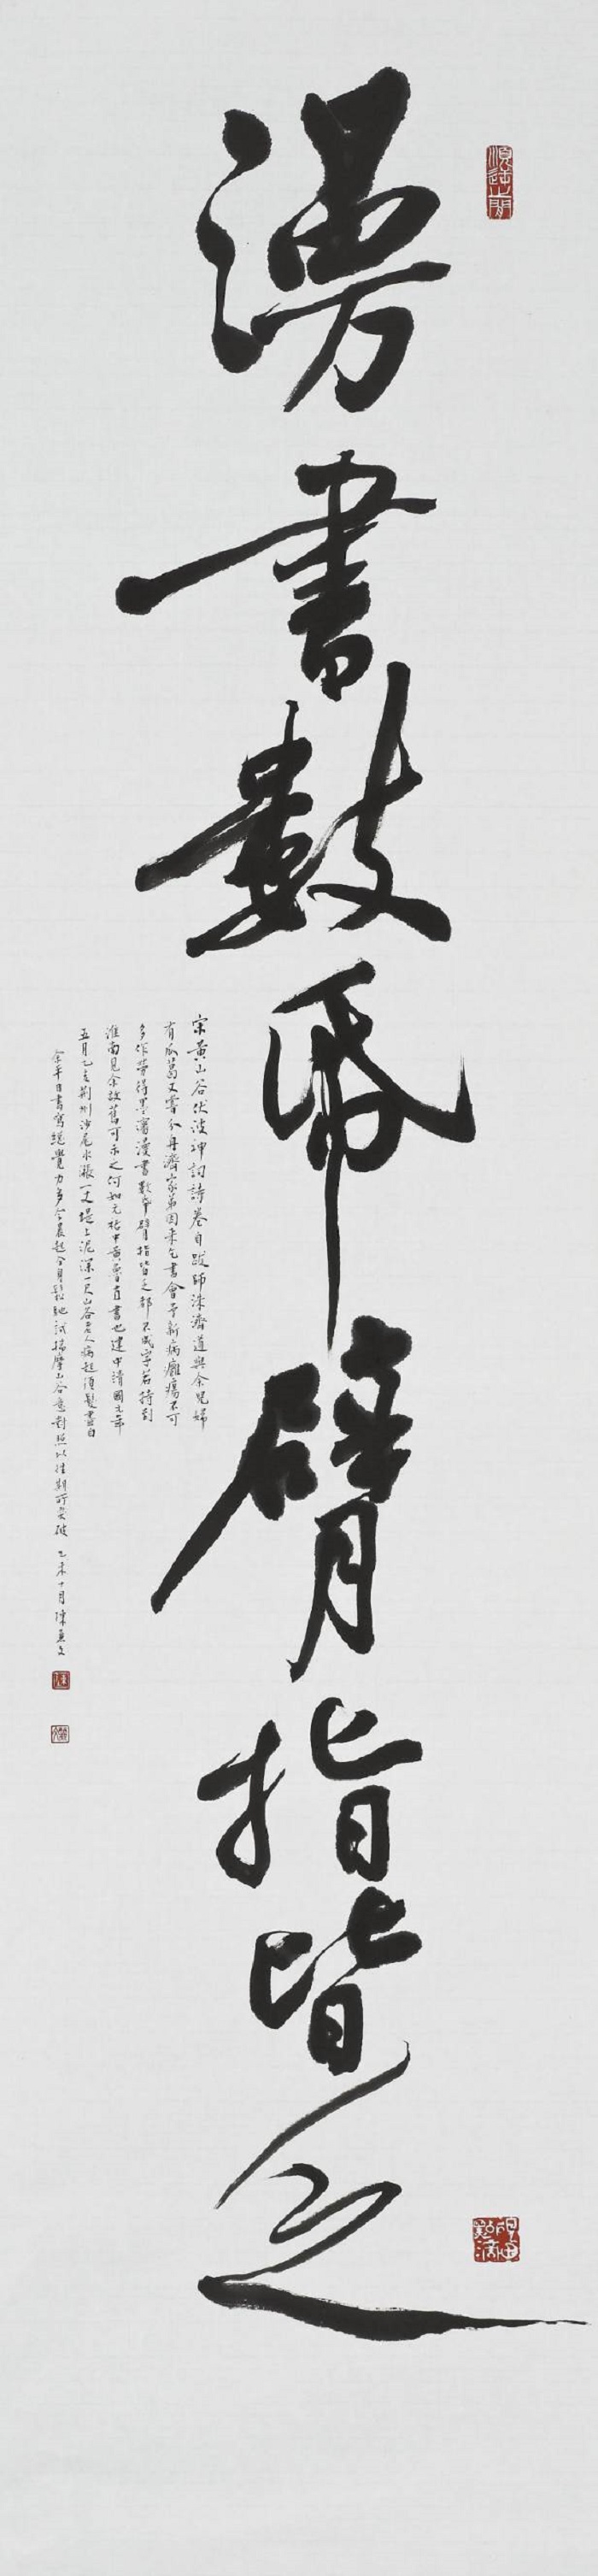 漫書數帋臂指皆乏
宋黃山谷伏波神祠詩卷自跋師洙濟道與余兒婦
有瓜葛又嘗分舟濟家弟因來乞書會予新病癰瘍不可
多作勞得墨瀋漫書數帋臂指皆乏都不成字若持到
淮南見余故舊可示之何如元祐中黃魯直書也建中靖國元年
五月乙亥荊州沙尾水漲一丈堤上泥深一尺山谷老人病起須髮盡白
余平日書寫總覺力多今晨起全身鬆弛試揣摩山谷意對照以往期所突破 乙未十月陳